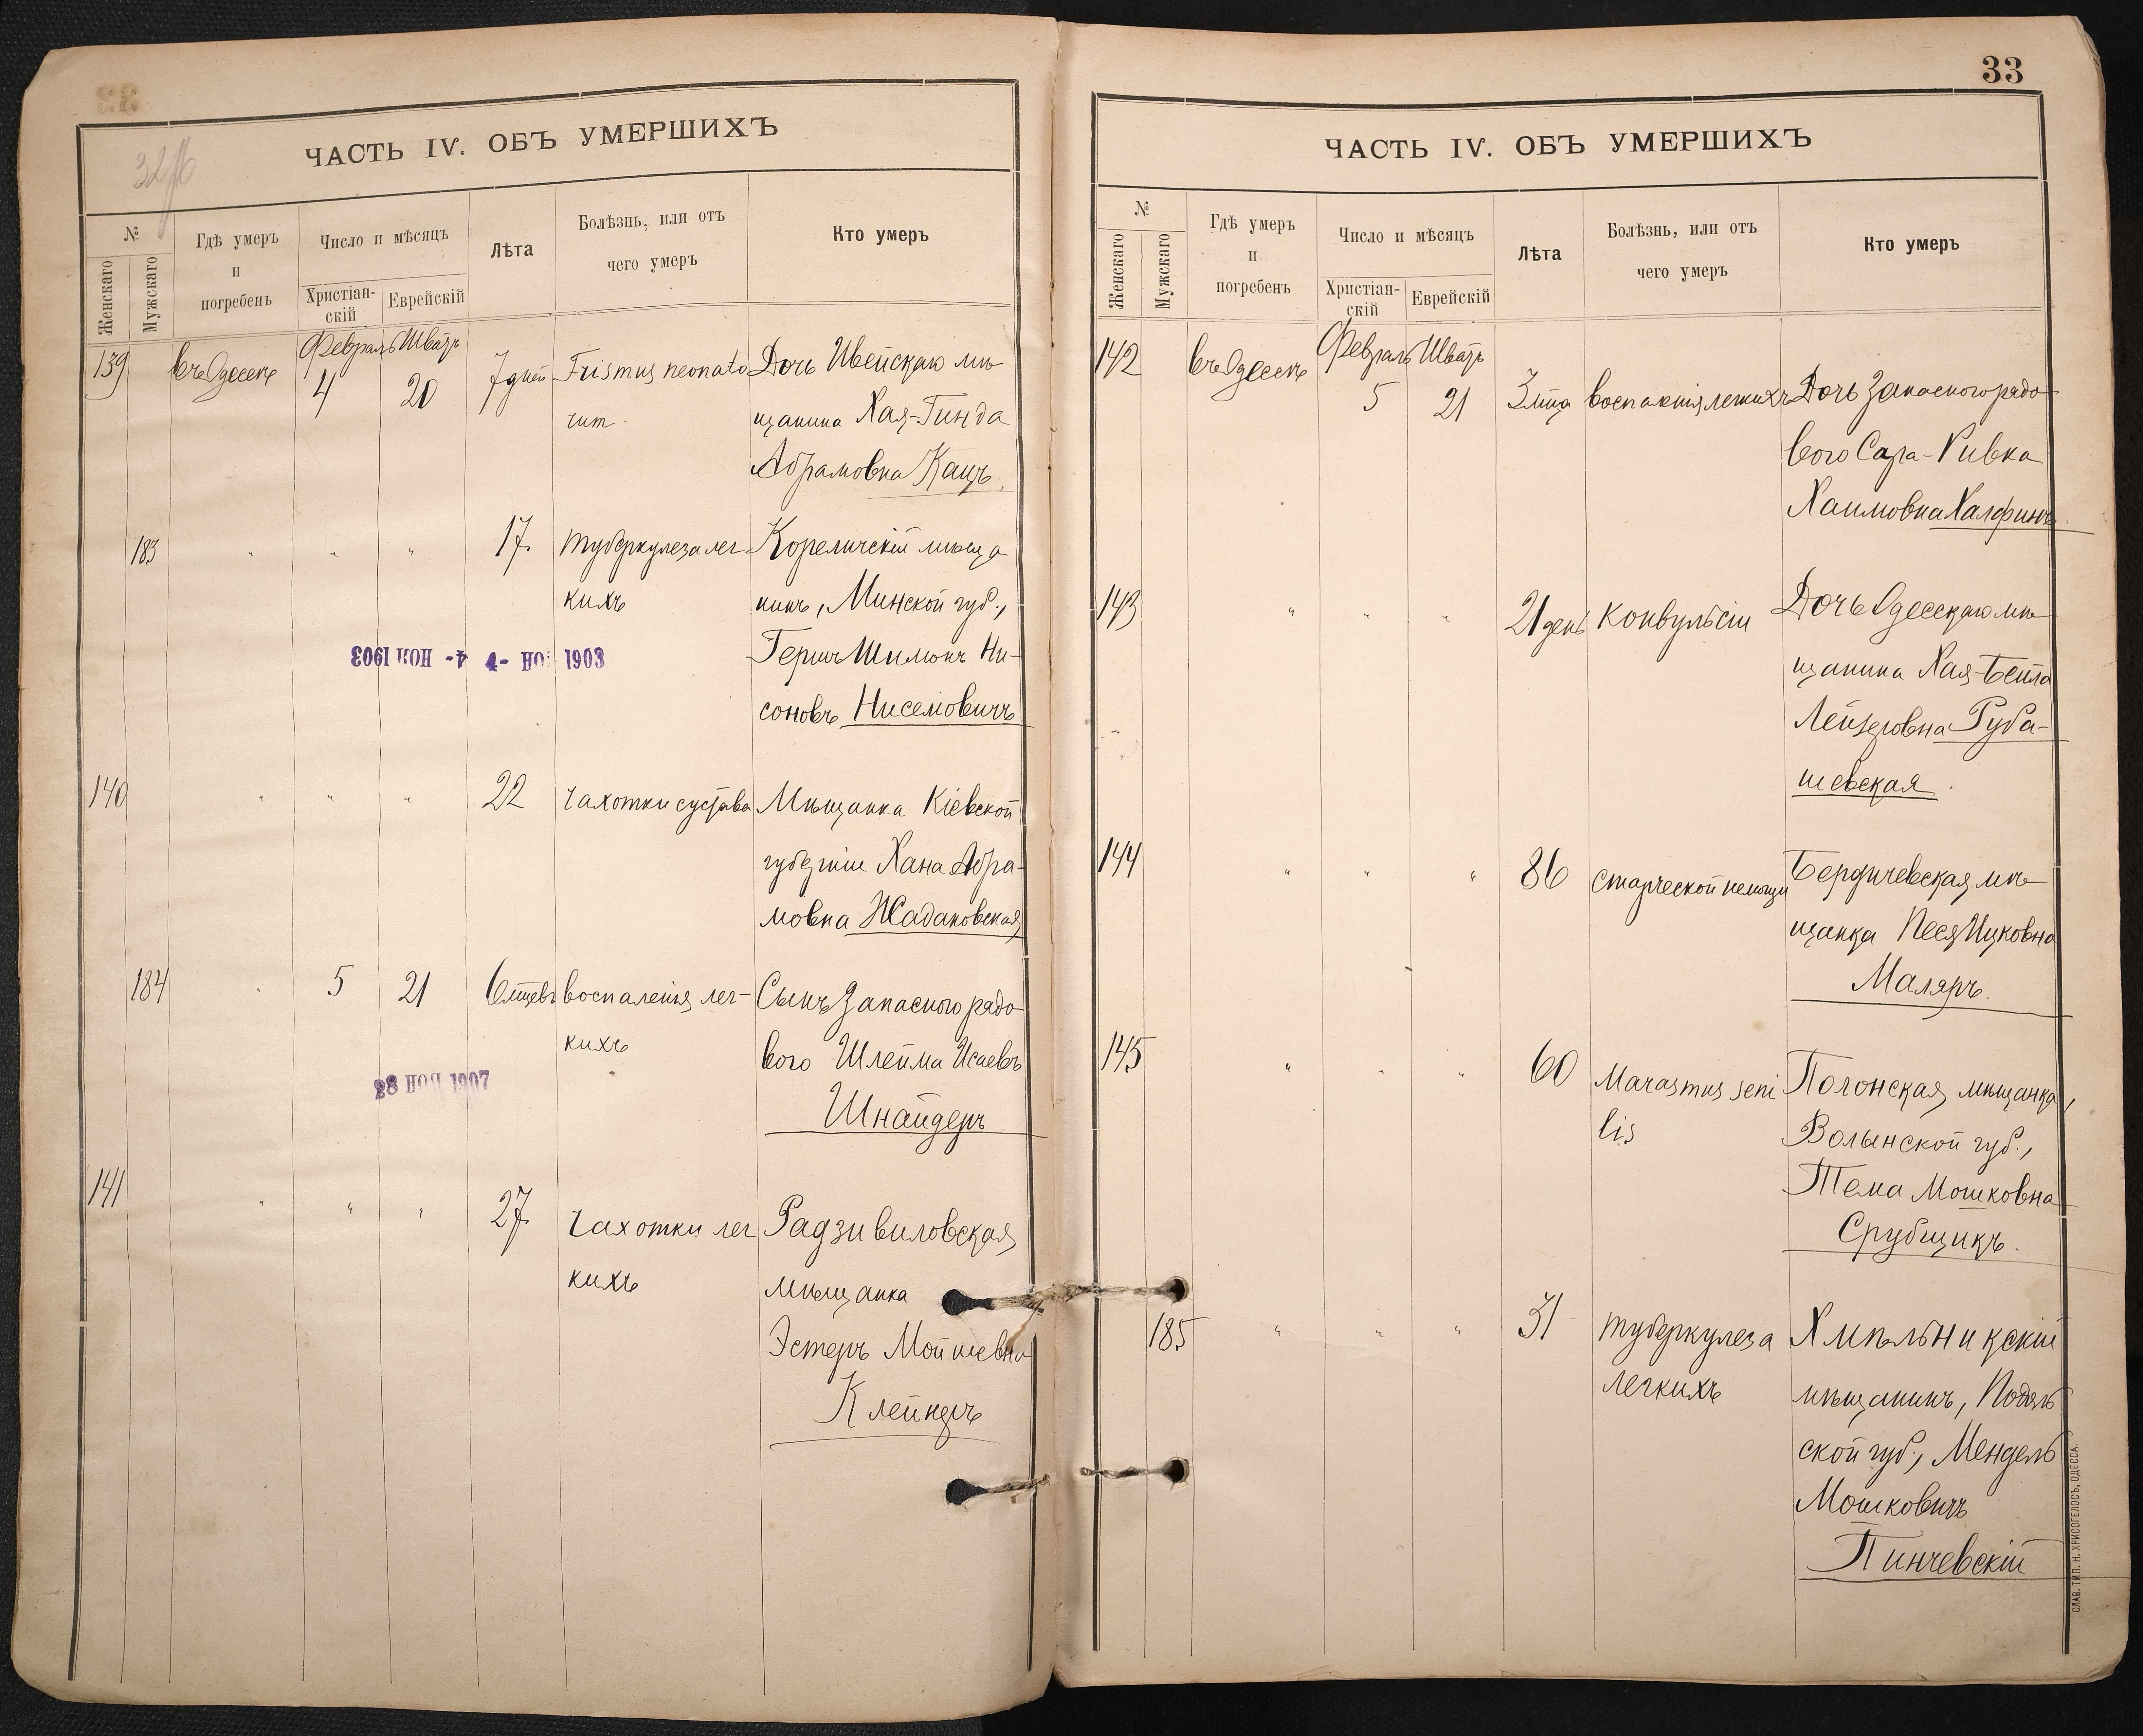 32
ЧАСТЬ IV. ОБЪ УМЕРШИХЪ
№
Женскаго
Мужскаго
Гдѣ умеръ
и
погребенъ
Число и мѣсяцъ
Христіан-
скій
Еврейскій
Лѣта
Болѣзнь, или отъ
чего умеръ
Кто умеръ
139 въ Одессѣ Февраль 4 Шватъ 20 7 дней Trismus neonato Дочь Ивейскаго мѣ
щанина Хая-Гинда
Абрамовна Кацъ.
183 " " " 17 туберкулеза лег- Кореличскій мѣща
кихъ нинъ, Минской губ.,
4- НОЯ 1903 4- НОЯ 1903 Гершъ Шимонъ Ни-
соновъ Ниселіовичъ
140 " " " 22 чахотки сустава Мѣщанка Кіевской
губерніи Хана Абра-
мовна Жадановская
184 " 5 21 6 мцевъ воспаленія лег- Сынъ запасного рядо
кихъ вого Шлейма Исаевъ
28 НОЯ 1907 Шнайдеръ
141 " " " 27 чахотки лег Радзивиловская
кихъ мѣщанка
Эстеръ Мойшевна
Клейнеръ
33
ЧАСТЬ IV. ОБЪ УМЕРШИХЪ
№
Женскаго
Мужскаго
Гдѣ умеръ
и
погребенъ
Число и мѣсяцъ
Христіан-
скій
Еврейскій
Лѣта
Болѣзнь, или отъ
чего умеръ
Кто умеръ
142 въ Одессѣ Февраль 5 Шватъ 21 3 мца воспаленія легкихъ Дочь запасного рядо-
вого Сара-Ривка
Хаимовна Халфинъ
143 " " " 21 день Конвульсіи Дочь Одесскаго мѣ
щанина Хая-Бейла
Лейзеровна Руба-
шевская.
144 " " " 86 старческой немощи Бердичевская мѣ
щанка Песя Ицковна
Маляръ.
145 " " " 60 Marasmus seni Полонская мѣщанка,
lis Волынской губ.,
Тема Мошковна
Срубщикъ.
185 " " " 31 туберкулеза Хмѣльникскій
легкихъ мѣщанинъ, Подоль
ской губ., Мендель
Мошковичъ
Пинчевскій
СЛАВ. ТИП. Н. ХРИСОГЕЛОСЪ, ОДЕССА.